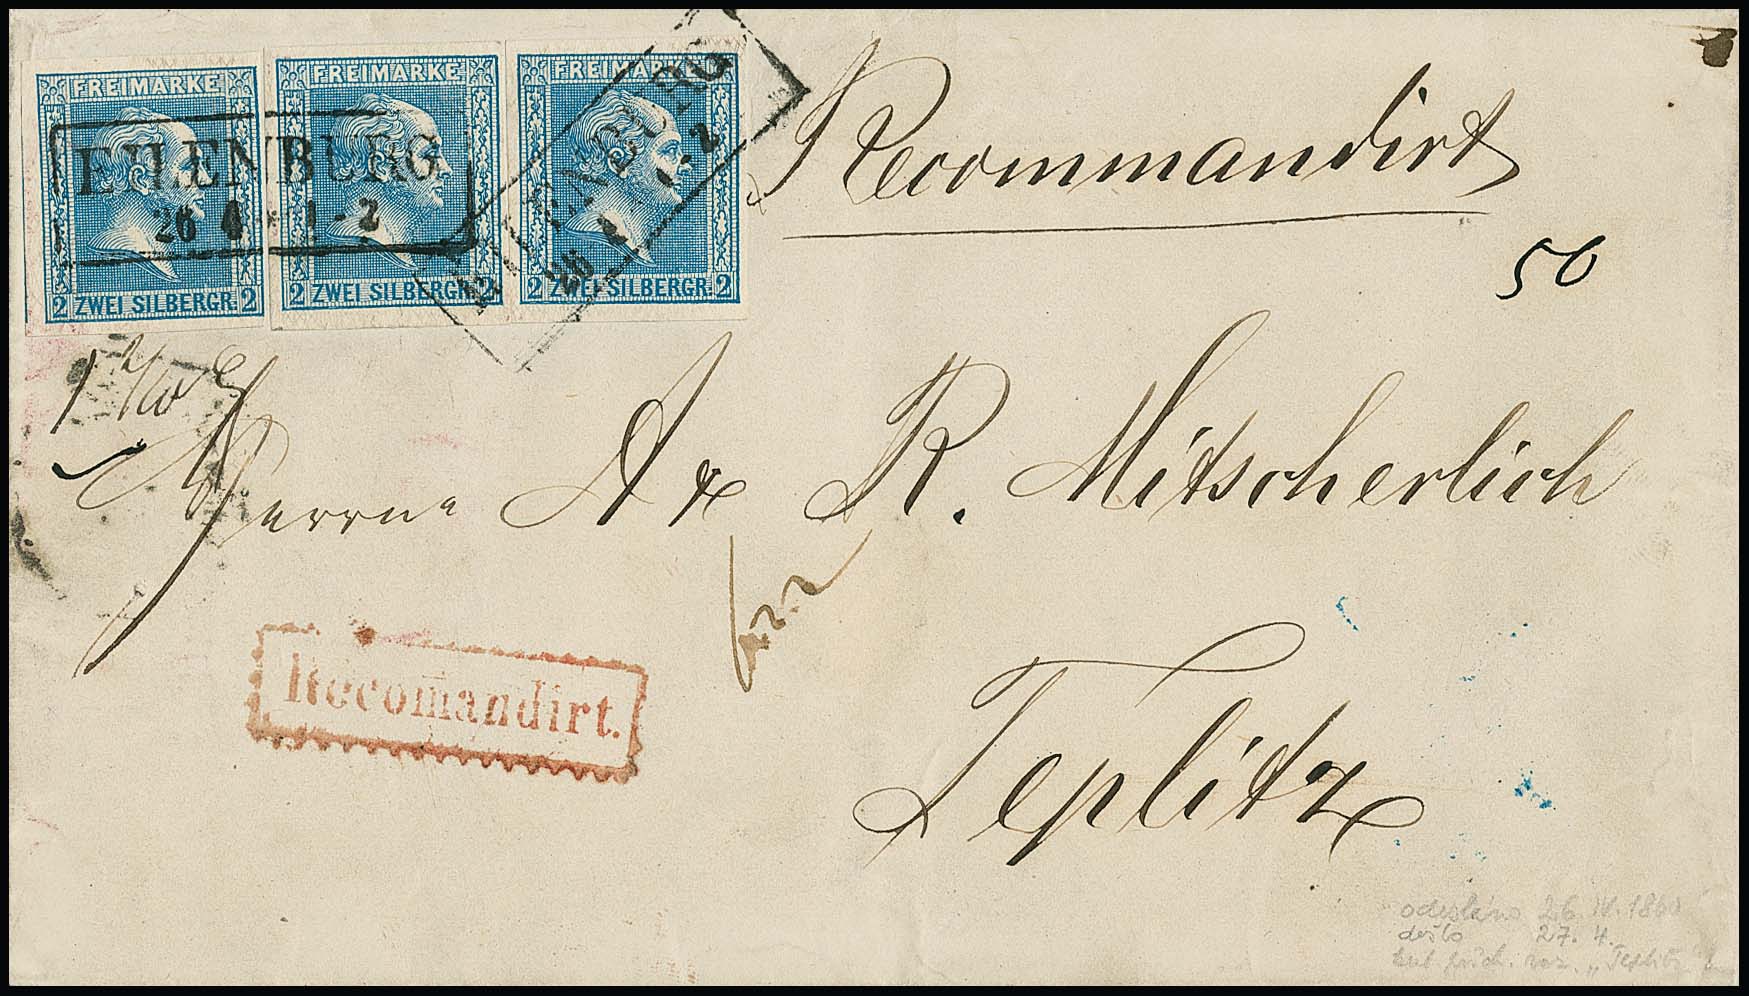 FREIMARKE FREIMARKE FREIMARKE
EILENBURG
26 4 * 1 - 2
EILENBURG
26 - 2
2 ZWEI SILBERGR. 2 2 ZWEI SILBERGR. 2 2 ZWEI SILBERGR. 2
Recommandirt
50
Herrn A R. Mitscherlich
Recomandirt.
Teplitz
odesláno 26. IV. 1860
došlo 27. 4.
"Teplitz"